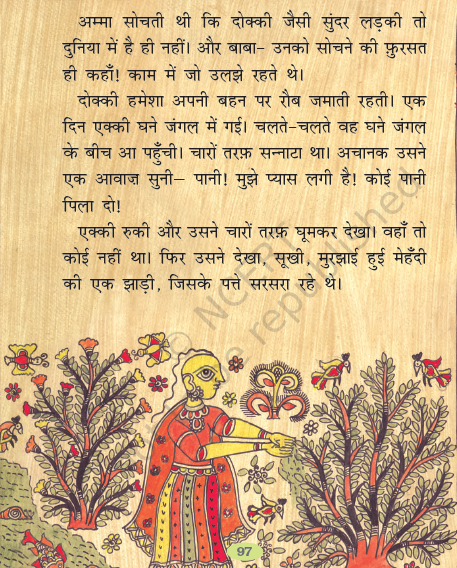 अम्मा सोचती थी कि दोक्की जैसी सुंदर लड़की तो
दुनिया में है ही नहीं। और बाबा– उनको सोचने की फ़ुरसत
ही कहाँ! काम में जो उलझे रहते थे।
दोक्की हमेशा अपनी बहन पर रौब जमाती रहती। एक
दिन एक्की घने जंगल में गई। चलते-चलते वह घने जंगल
के बीच आ पहुँची। चारों तरफ़ सन्नाटा था। अचानक उसने
एक आवाज़ सुनी– पानी! मुझे प्यास लगी है! कोई पानी
पिला दो!
एक्की रुकी और उसने चारों तरफ़ घूमकर देखा। वहाँ तो
कोई नहीं था। फिर उसने देखा, सूखी, मुरझाई हुई मेहँदी
की एक झाड़ी, जिसके पत्ते सरसरा रहे थे।
© NCERT
be republished
97